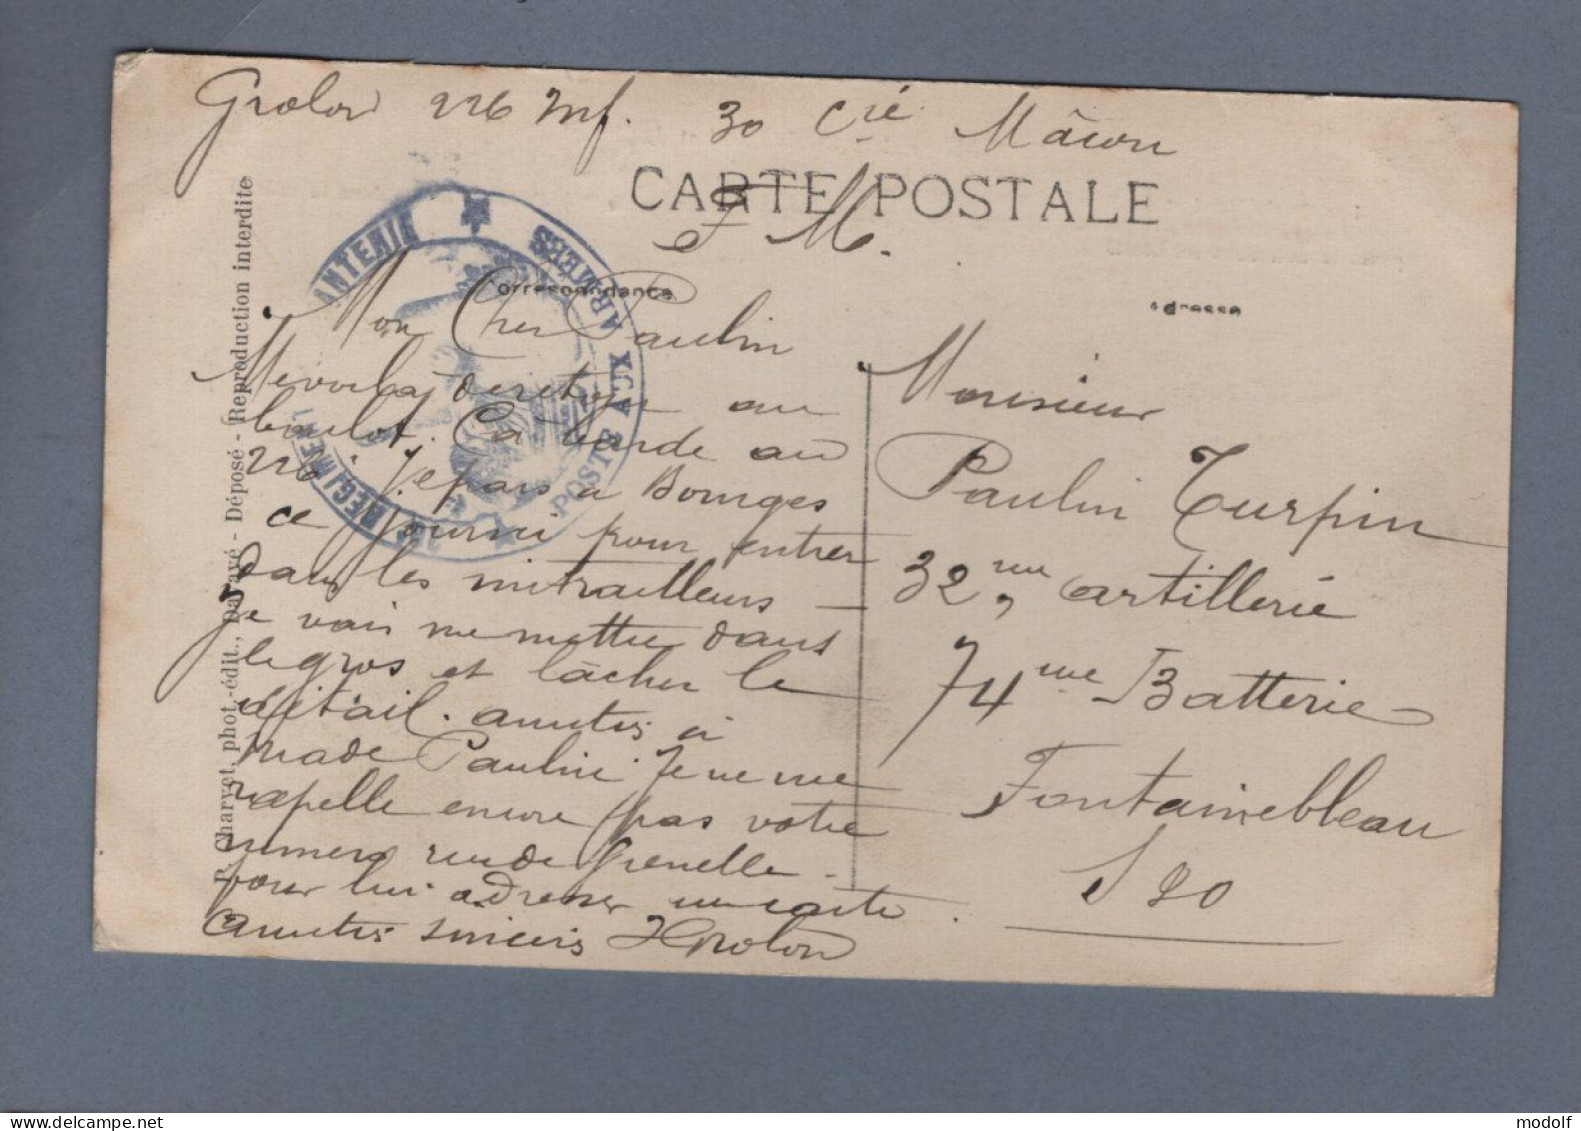 Grolon 226 Inf. 30 Cie Mâcon
CARTE POSTALE
F M.
Correspondance
Adresse
Mon Cher Paulin
Me voila de retour au
boulot. Ça barde au
226 Je pars à Bourges
ce jourui pour entrer
dans les mitrailleurs
je vais me mettre dans
le gros et lâcher le
détail. amities à
Made Pauline. Je ne me
rapelle encore pas votre
numero rue de Grenelle.
pour lui adresser une carte.
amities sinceres HGrolon
Monsieur
Paulin Turpin
32me artillerie
74me Batterie
Fontainebleau
S 20
P. Charvet, phot.-édit., Paray - Déposé - Reproduction interdite
REGIMENT
POSTES AUX ARMEES
modolf